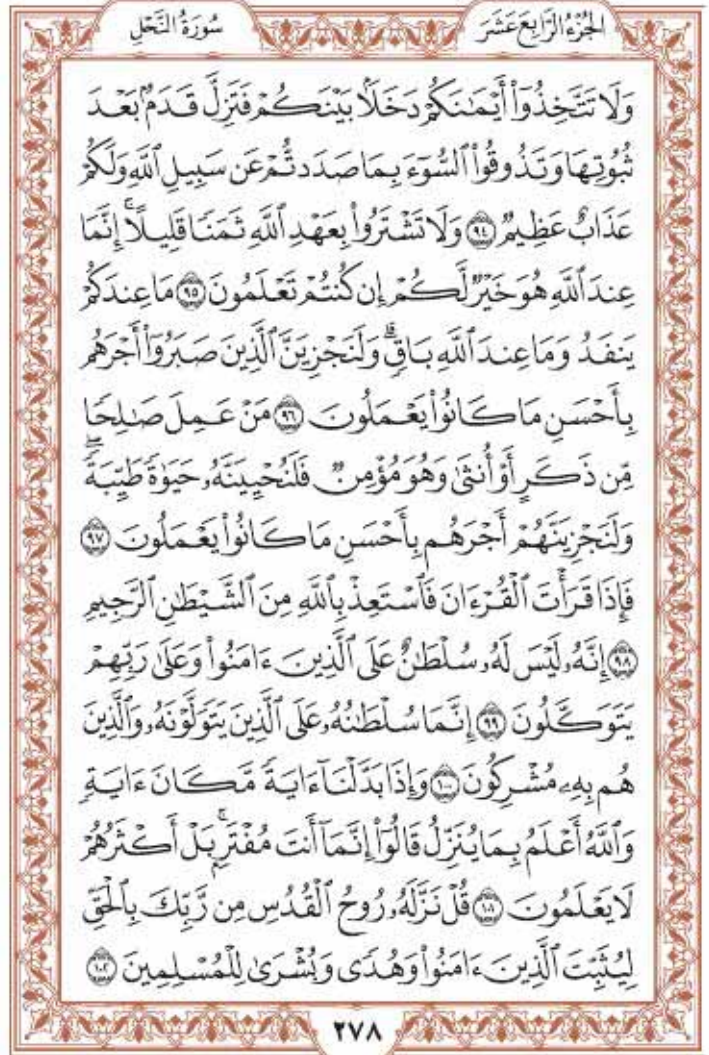 الجُزْءُ الرَّابِعَ عَشَرَ
سُورَةُ النَّحْلِ
وَلَا تَتَّخِذُوٓاْ أَيْمَٰنَكُمْ دَخَلَۢا بَيْنَكُمْ فَتَزِلَّ قَدَمُۢ بَعْدَ
ثُبُوتِهَا وَتَذُوقُواْ ٱلسُّوٓءَ بِمَا صَدَدتُّمْ عَن سَبِيلِ ٱللَّهِ وَلَكُمْ
عَذَابٌ عَظِيمٌ ٩٤ وَلَا تَشْتَرُواْ بِعَهْدِ ٱللَّهِ ثَمَنًا قَلِيلًاۚ إِنَّمَا
عِندَ ٱللَّهِ هُوَ خَيْرٌ لَّكُمْ إِن كُنتُمْ تَعْلَمُونَ ٩٥ مَا عِندَكُمْ
يَنفَدُ وَمَا عِندَ ٱللَّهِ بَاقٍۗ وَلَنَجْزِيَنَّ ٱلَّذِينَ صَبَرُوٓاْ أَجْرَهُم
بِأَحْسَنِ مَا كَانُواْ يَعْمَلُونَ ٩٦ مَنْ عَمِلَ صَٰلِحًا
مِّن ذَكَرٍ أَوْ أُنثَىٰ وَهُوَ مُؤْمِنٌ فَلَنُحْيِيَنَّهُۥ حَيَوٰةً طَيِّبَةًۖ
وَلَنَجْزِيَنَّهُمْ أَجْرَهُم بِأَحْسَنِ مَا كَانُواْ يَعْمَلُونَ ٩٧
فَإِذَا قَرَأْتَ ٱلْقُرْءَانَ فَٱسْتَعِذْ بِٱللَّهِ مِنَ ٱلشَّيْطَٰنِ ٱلرَّجِيمِ
٩٨ إِنَّهُۥ لَيْسَ لَهُۥ سُلْطَٰنٌ عَلَى ٱلَّذِينَ ءَامَنُواْ وَعَلَىٰ رَبِّهِمْ
يَتَوَكَّلُونَ ٩٩ إِنَّمَا سُلْطَٰنُهُۥ عَلَى ٱلَّذِينَ يَتَوَلَّوْنَهُۥ وَٱلَّذِينَ
هُم بِهِۦ مُشْرِكُونَ ١٠٠ وَإِذَا بَدَّلْنَآ ءَايَةً مَّكَانَ ءَايَةٍ
وَٱللَّهُ أَعْلَمُ بِمَا يُنَزِّلُ قَالُوٓاْ إِنَّمَآ أَنتَ مُفْتَرٍۭۚ بَلْ أَكْثَرُهُمْ
لَا يَعْلَمُونَ ١٠١ قُلْ نَزَّلَهُۥ رُوحُ ٱلْقُدُسِ مِن رَّبِّكَ بِٱلْحَقِّ
لِيُثَبِّتَ ٱلَّذِينَ ءَامَنُواْ وَهُدًى وَبُشْرَىٰ لِلْمُسْلِمِينَ ١٠٢
٢٧٨